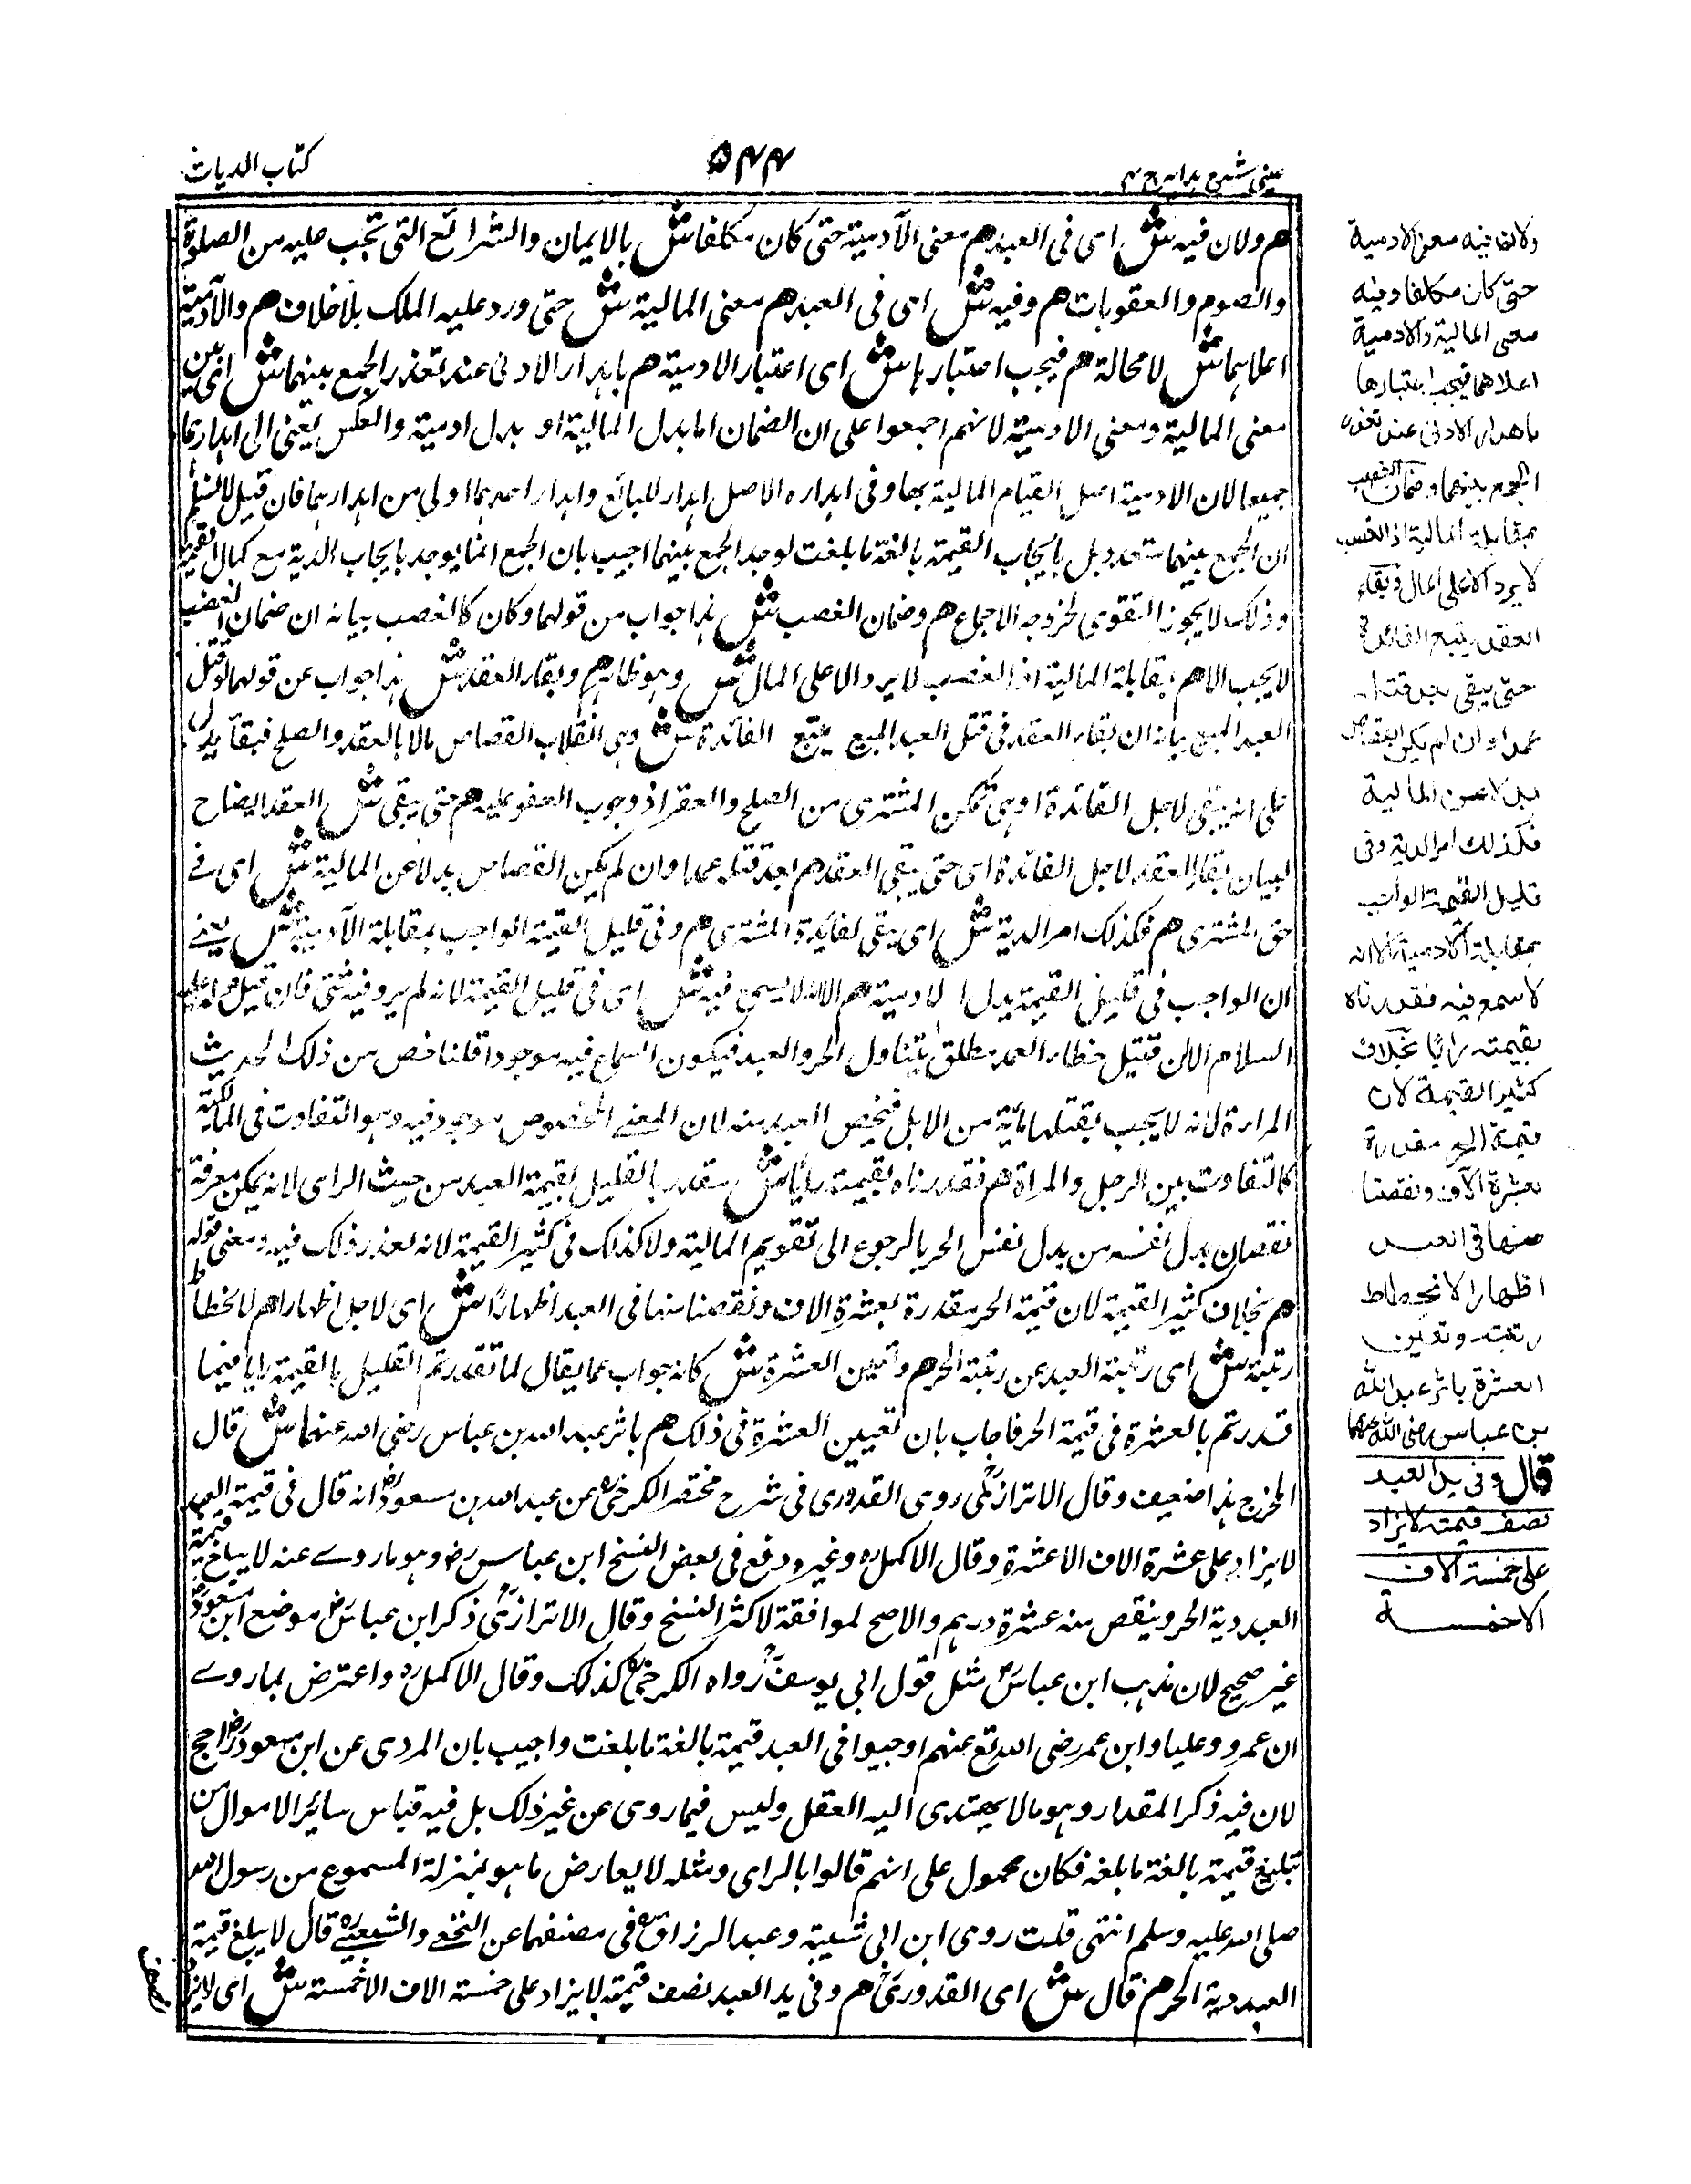 عینی شرح ہدایہ ج ۴
۵۴۴
کتاب الدیات
هم ولان فيه ش ای فی العبد هم معنی الآدمیة حتی کان مکلفا ش بالایمان والشرائع التی تجب علیه من الصلوة
والصوم والعقوبات هم وفیه ش ای فی العبد هم معنی المالیة ش حتی ورد علیه الملک بلاخلاف هم والآدمیة
اعلاہما ش لا محالة هم فیجب اعتبارہا ش ای اعتبار الادمیة هم باہدار الادنی عند تعذر الجمع بینہما ش ای بین
معنی المالیة ومعنی الادمیة لانہم اجمعوا علی ان الضمان اما بدل المالیة او بدل ادمیة والعکس یعنی الی اہدارہما
جمیعا لان الادمیة اصل لقیام المالیة بہا وفی اہدارہ الاصل اہدار للبائع واہدار احدہما اولی من اہدارہما فان قیل لانسلم
ان الجمع بینہما متعدد بل بایجاب القیمة بالغة ما بلغت لوجد الجمع بینہما اجیب بان الجمع انما یوجد بایجاب الدیة مع کمال القیمة
وذلک لا یجوز التقوی لخروجه الاجماع هم وضمان الغصب ش ہذا جواب من قولہما وکان کالغصب بیانه ان ضمان الغصب
لا یجب الا هم بمقابلة المالیة اذ الغصب لا یرد الا علی المال ش وہو ظاہر هم وبقاء العقد ش ہذا جواب عن قولہما لو قتل
العبد المبیع بیانه ان بقاء العقد فی قتل العبد المبیع یتبع الفائدة ش وہی انقلاب القصاص مالا بالعقد والصلح فبقاء یدل
علی انه یبقی لاجل الفائدة اوہی تمکن المشتری من الصلح والعقر اذ وجوب العفو علیه هم حتی یبقی ش العقد ایضاح
لبیان بقاء العقد لاجل الفائدة ای حتی یبقی العقد هم بعد قتله عمدا وان لم یکن القصاص بدلا عن المالیة ش ای فے
حق المشتری هم فکذلک امر الدیة ش ای یبقی لفائدة المشتری هم وفی قلیل القیمة الواجب بمقابلة الآدمیة ش یعنے
ان الواجب فی قلیل القیمة بدل الادمیة هم الا انه لا یسمع فیه ش ای فی قلیل القیمة لانه لم یرو فیه شئ فان قیل قوله علیه
السلام الا ان قتیل خطاء العمد مطلق یتناول الحر والعبد فیکون السماع فیه موجودا قلنا خص من ذلک الحدیث
المراءة لانه لا یجب بقتلہا مائة من الابل فیخص العبد منه لان المعنے المخصوص موجود فیه وہو التفاوت فی المالکیة
کالتفاوت بین الرجل والمراة هم فقدرناہ بقیمته رأیا ش مقدر بالقلیل بقیمة العبد من حیث الرای لانه یمکن معرفة
نقصان بدل نفسه من بدل نفس الحر بالرجوع الی تقویم المالیة ولا کذلک فی کثیر القیمة لانه تعذر ذلک فیه ومعنی قوله
هم بخلاف کثیر القیمة لان قیمة الحر مقدرة بعشرة الاف ونقصنا منہا فی العبد اظہارا ش ای لاجل اظہارا هم لانحطاط
رتبته ش ای رتبة العبد عن رتبة الحر هم وتعیین العشرة ش کانه جواب عما یقال لما تقدرتم القلیل بالقیمة رایا فیما
قدرتم بالعشرة فی قیمة الحر فاجاب بان تعیین العشرة فی ذلک هم باثر عبد اللہ بن عباس رضی اللہ عنہما ش قال
المخرج ہذا ضعیف وقال الاترازیؒ روی القدوری فی شرح مختصر الکرخیؒ عن عبد اللہ بن مسعودؓ انه قال فی قیمة العبد
لا یزاد علی عشرة الاف الا عشرة وقال الاکملؒ وغیرہ ودفع فی بعض النسخ ابن عباس رض وہو ما روے عنه لا یباع قیمة
العبد دیة الحر وینقص منه عشرة درہم والاصح لموافقة لاکثر النسخ وقال الاترازیؒ ذکر ابن عباسؓ موضع ابن مسعودؓ
غیر صحیح لان مذہب ابن عباسؓ مثل قول ابی یوسفؒ رواہ الکرخیؒ کذلک وقال الاکملؒ واعترض بما روے
ان عمرو وعلیا وابن عمر رضی اللہ تع عنہم اوجبوا فی العبد قیمة بالغة ما بلغت واجیب بان المروی عن ابن مسعودؓ راجح
لان فیه ذکر المقدار وہو مالا یہتدی الیه العقل ولیس فیما روی عن غیر ذلک بل فیه قیاس سائر الاموال من
تبلیغ قیمة بالغة ما بلغه فکان محمول علی انہم قالوا بالرای ومثله لا یعارض ما ہو بمنزلة المسموع من رسول اللہ
صلی اللہ علیه وسلم انتہی قلت روی ابن ابی شیبة وعبد الرزاقؒ فی مصنفہما عن النخعے والشعبےؒ قال لا یبلغ قیمة
العبد دیة الحر هم قال ش ای القدوریؒ هم وفی ید العبد نصف قیمته لا یزاد علی خمسة الاف الا خمسة ش ای لا یزاد
ولان فیه معنی الادمیة
حتی کان مکلفا وفیه
معنی المالیة والادمیة
اعلاهما فیجب اعتبارها
باهدار الادنی عند تعذر
الجمع بینهما وضمان الغصب
بمقابلة المالیة اذ الغصب
لا یرد الا علی المال وبقاء
العقد یتبع الفائدة
حتی یبقی بعد قتله
عمدا وان لم یکن القصاص
بدلا عن المالیة
فکذلک امر الدیة وفی
قلیل القیمة الواجب
بمقابلة الآدمیة الا انه
لا سمع فیه فقدرناه
بقیمته رأیا بخلاف
کثیر القیمة لان
قیمة الحر مقدرة
بعشرة آلاف ونقصنا
منها فی العبد
اظهارا لانحطاط
رتبته وتعیین
العشرة باثر عبد الله
بن عباس رضی الله عنهما
قال وفی ید العبد
نصف قیمته لا یزاد
علی خمسة آلاف
الا خمسة